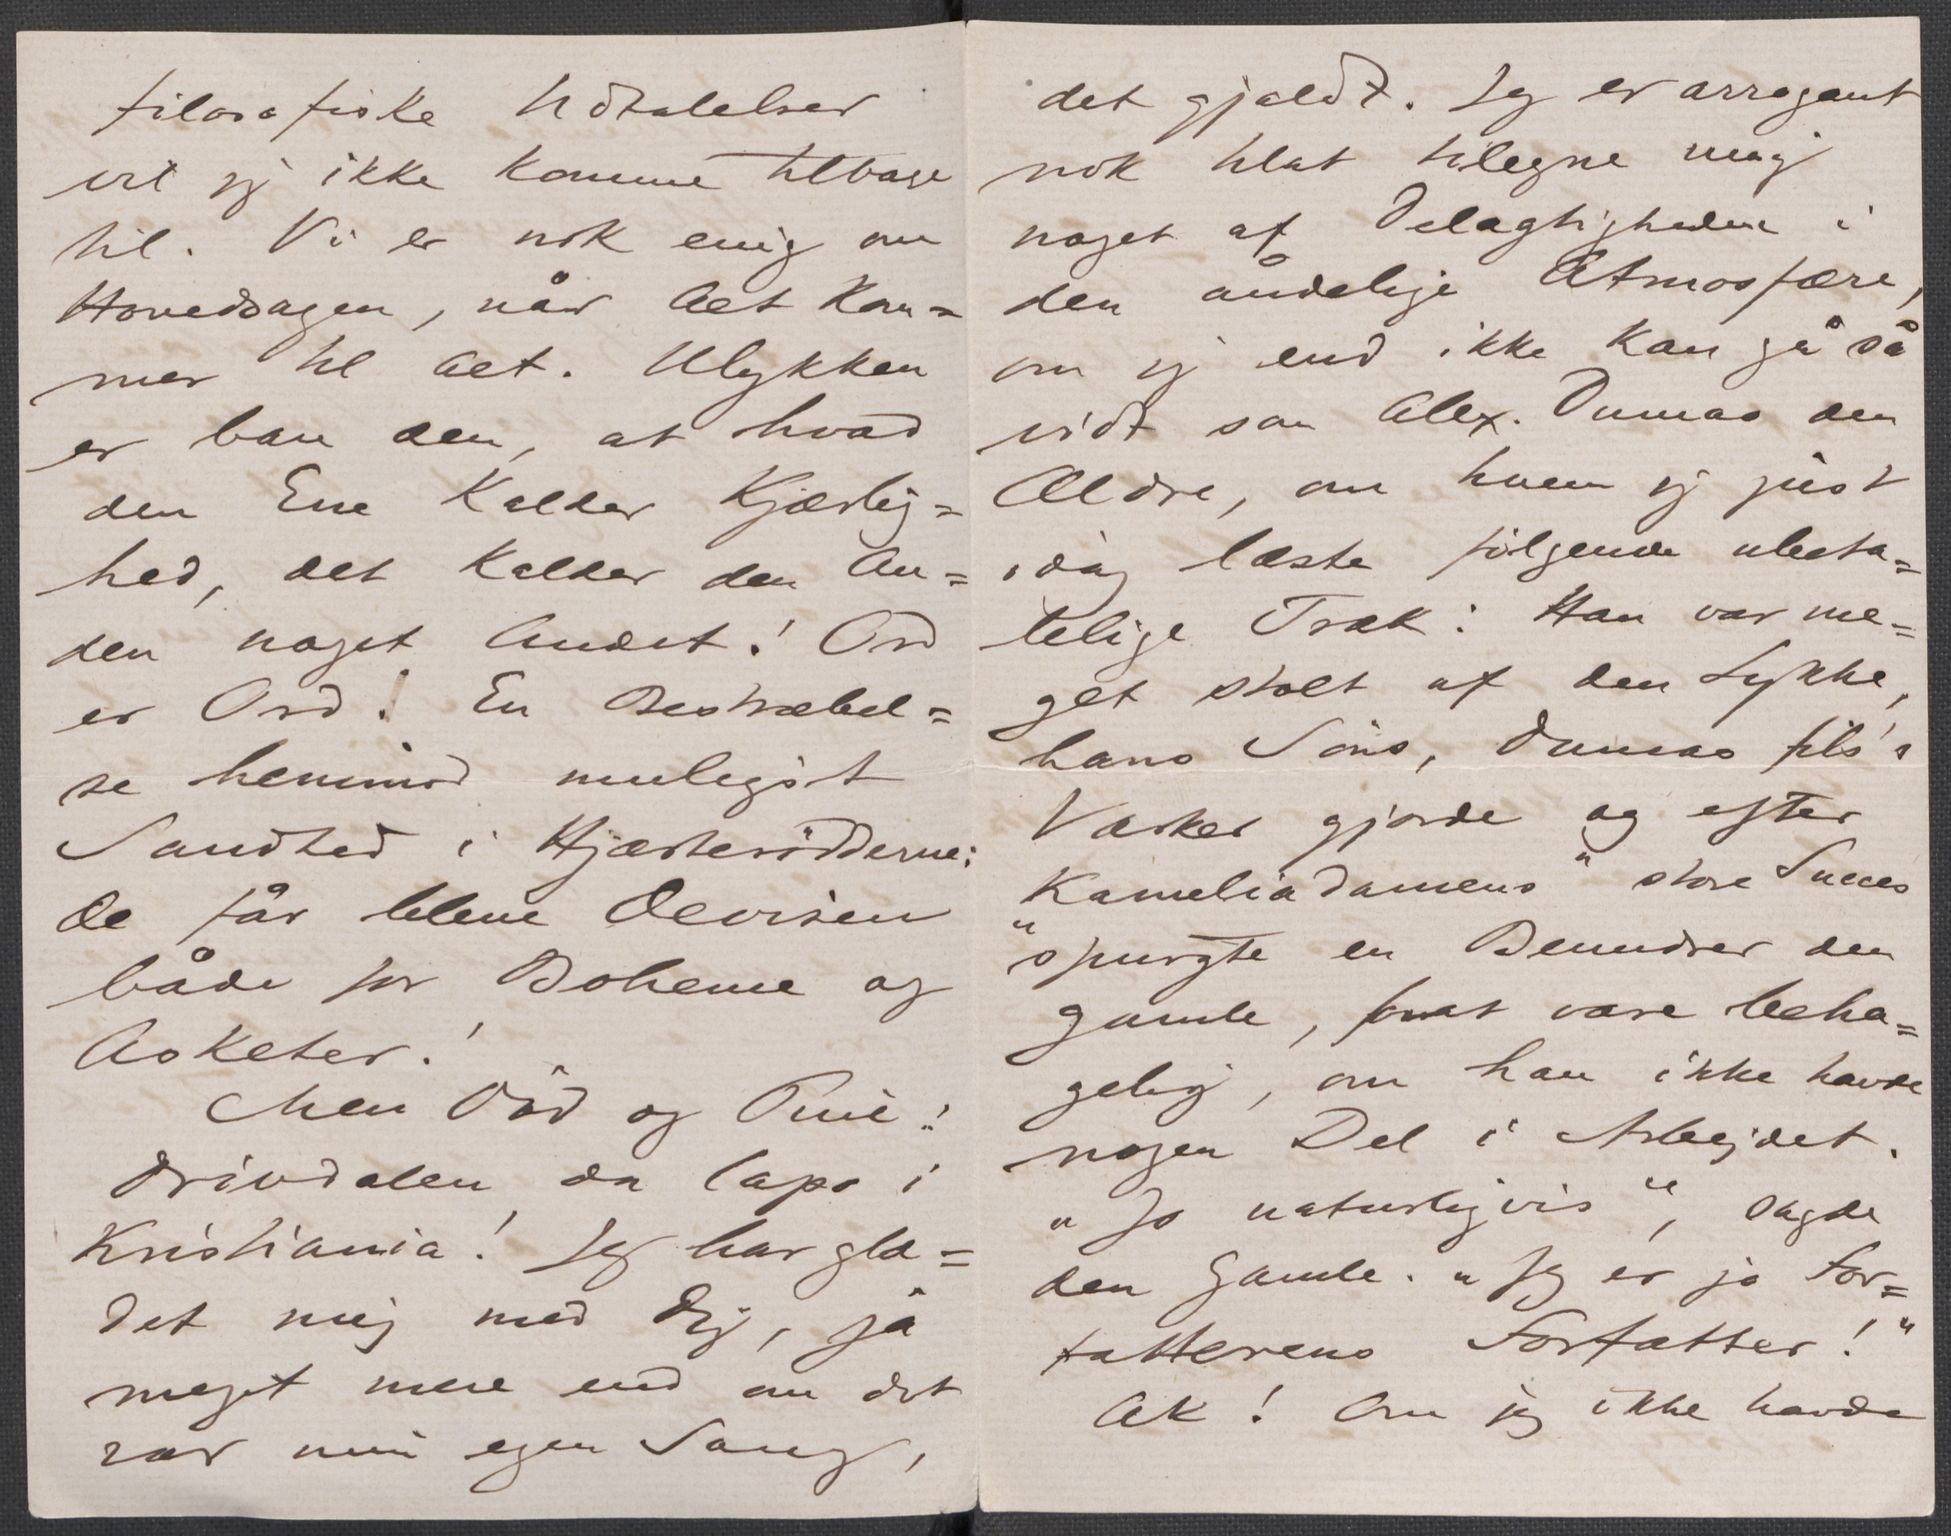 filosofiske Udtalelser
vil jeg ikke komme tilbage
til. Vi er nok enig om
Hovedsagen, når Alt kom=
mer til Alt. Ulykken
er bare den, at hvad
den Ene kalder Kjærlig=
hed, det kalder den An=
den noget Andet! Ord
er Ord! En Bestræbel=
se henimod muligst
Sandhed i Hjærterødderne:
De får blive Devisen
både for Boheme og
Asketer!
Men Död og Pine!:
Drivdalen da capo i
Kristiania! Jeg har glæ=
det mig med Dig, ja
meget mere end om det
var min egen Sang,
det gjældt. Jeg er arrogant
nok til at tilegne mig
noget af Delagtigheden i
den åndelige Atmosfære,
om jeg end ikke kan gå så
vidt som Alex. Dumas den
Ældre, om hvem jeg just
idag læste følgende ubeta=
telige Træk: Han var me=
get stolt af den Lykke,
hans Söns, Dumas fils's
Værker gjorde og efter
"Kameliadamens" store Succes
spurgte en Beundrer den
gamle, for at være beha=
gelig, om han ikke havde
nogen Del i Arbejdet.
"Jo naturligvis", sagde
den Gamle. "Jeg er jo For=
fatterens Forfatter!"
Ak! Om jeg ikke havde